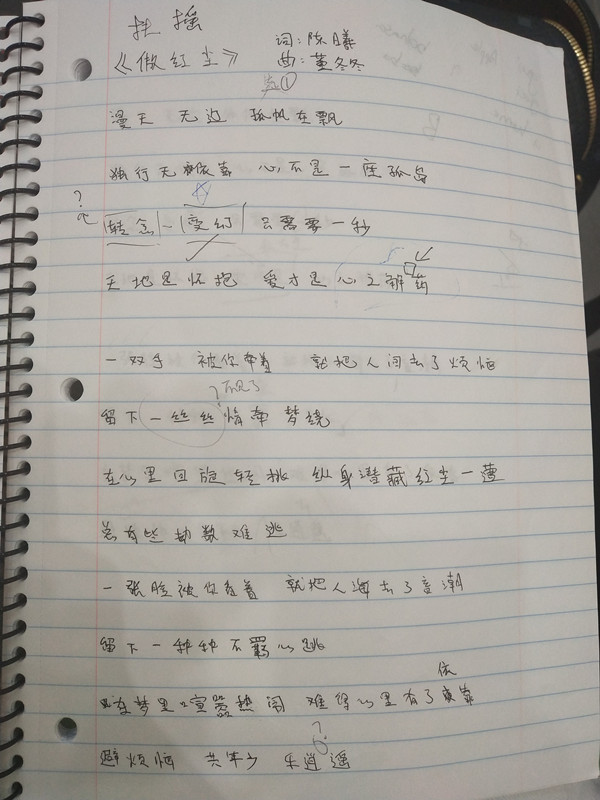 扶摇
《做红尘》 词:陈曦
曲:董冬冬
①
漫天 无边 孤帆在飘
独行无依靠 心不是一座孤岛
? 转念一变幻 只需要一秒
天地是怀抱 爱才是心之解药
一双手 被你牵着 就把人间去了烦恼
不见了
留下一丝丝情牵梦绕
在心里回旋轻挑 纵身潜藏红尘一遭
总有些劫数难逃
一张脸被你看着 就把人海去了高潮
留下一种种不羁心跳
依
在梦里喧嚣热闹 难得心里有了靠
?
避烦恼 共年少 乐逍遥